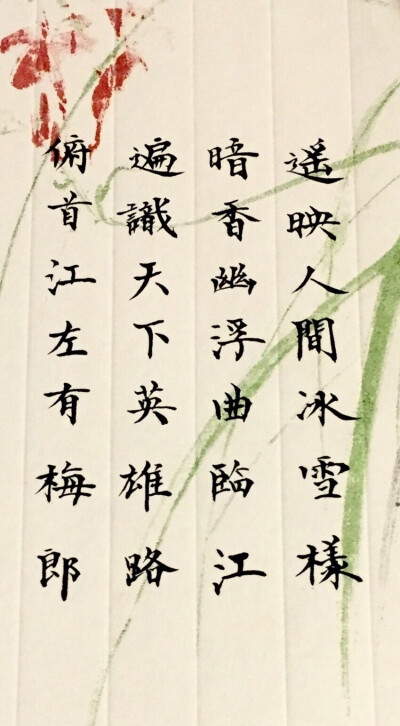 遥映人間冰雪樣
暗香幽浮曲臨江
遍識天下英雄路
俯首江左有梅郎